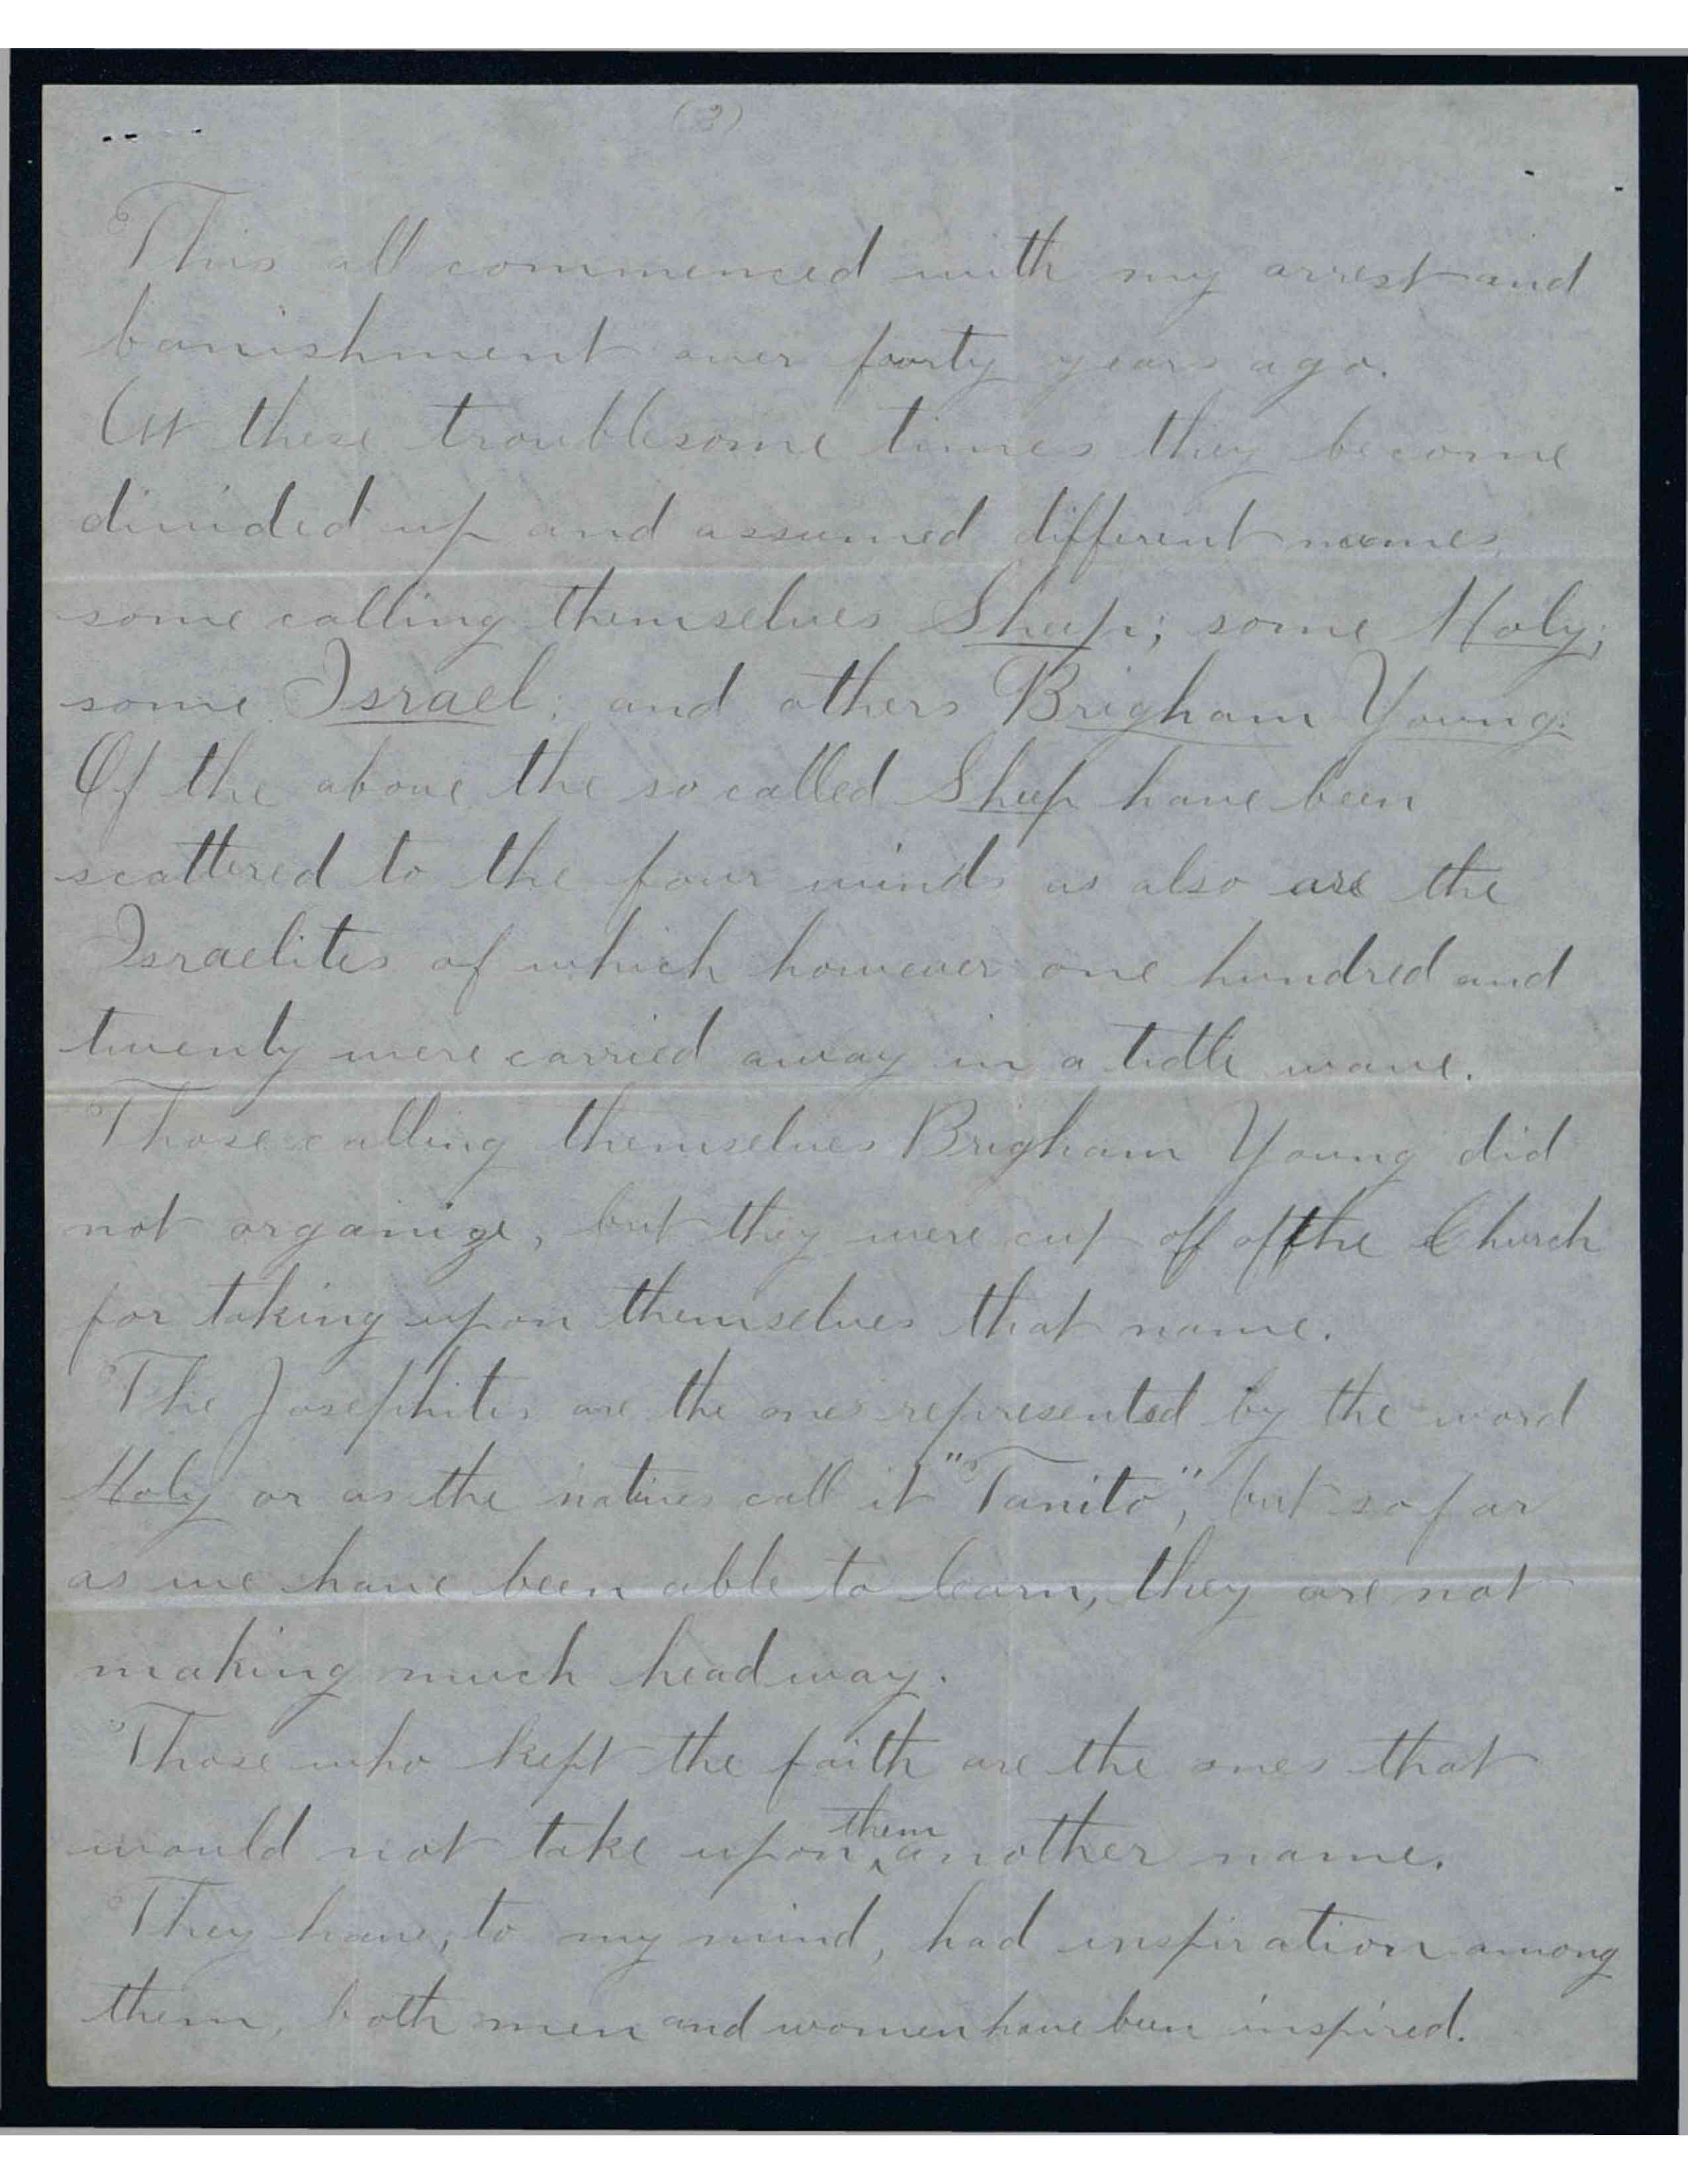 (3)
This all commenced with my arrest and
banishment over fourty years ago.
At these troublesome times they become
divided up and assumed different names,
some calling themselves Sheep; some Holy;
some Israel; and others Brigham Young.
Of the above the so called Sheep have been
scattered to the four winds as also are the
Israelites of which however one hundred and
twenty were carried away in a tidle wave.
Those calling themselves Brigham Young did
not organize, but they were cut off of the Church
for taking upon themselves that name.
The Josephites are the ones represented by the word
Holy or as the natives call it "Tanito", but so far
as we have been able to learn, they are not
making much headway.
Those who kept the faith are the ones that
would not take upon them another name.
They have, to my mind, had inspiration among
them, both men and women have been inspired.